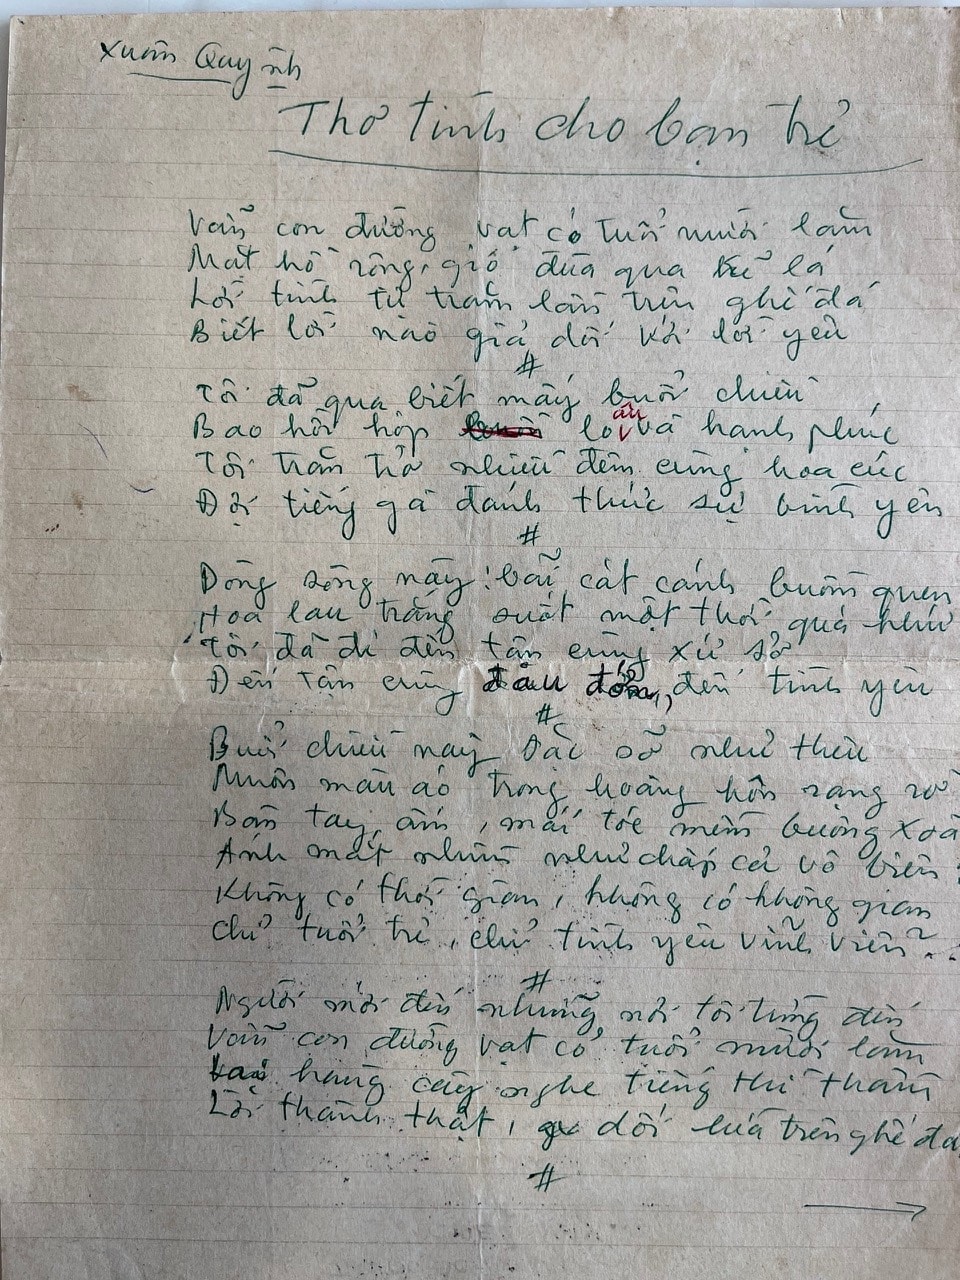 Xuân Quỳnh
Thơ tình cho bạn trẻ
Vẫn con đường vạt cỏ tuổi mười lăm
Mặt hồ rộng, gió đùa qua kẽ lá
Lời tình tự trăm lần trên ghế đá
Biết lời nào giả dối với lời yêu
#
Tôi đã qua biết mấy buổi chiều
Bao hồi hộp lo âu và hạnh phúc
Tôi trăn trở nhiều đêm cùng hoa cúc
Đợi tiếng gà đánh thức sự bình yên
#
Dòng sông này, bãi cát cánh buồm quen
Hoa lau trắng suốt một thời quá khứ
Tôi đã đi đến tận cùng xứ sở
Đến tận cùng đau đớn, đến tình yêu
#
Buổi chiều này sặc sỡ như thêu
Muôn màu áo trong hoàng hôn rạng rỡ
Bàn tay ấm, mái tóc mềm buông xoã
Ánh mắt nhìn như chấp cả vô biên
Không có thời gian, không có không gian
Chỉ tuổi trẻ, chỉ tình yêu vĩnh viễn...
#
Người mới đến những nơi tôi từng đến
Vẫn con đường vạt cỏ tuổi mười lăm
hàng cây nghe tiếng thì thầm
Lời thành thật, dối lừa trên ghế đá
#